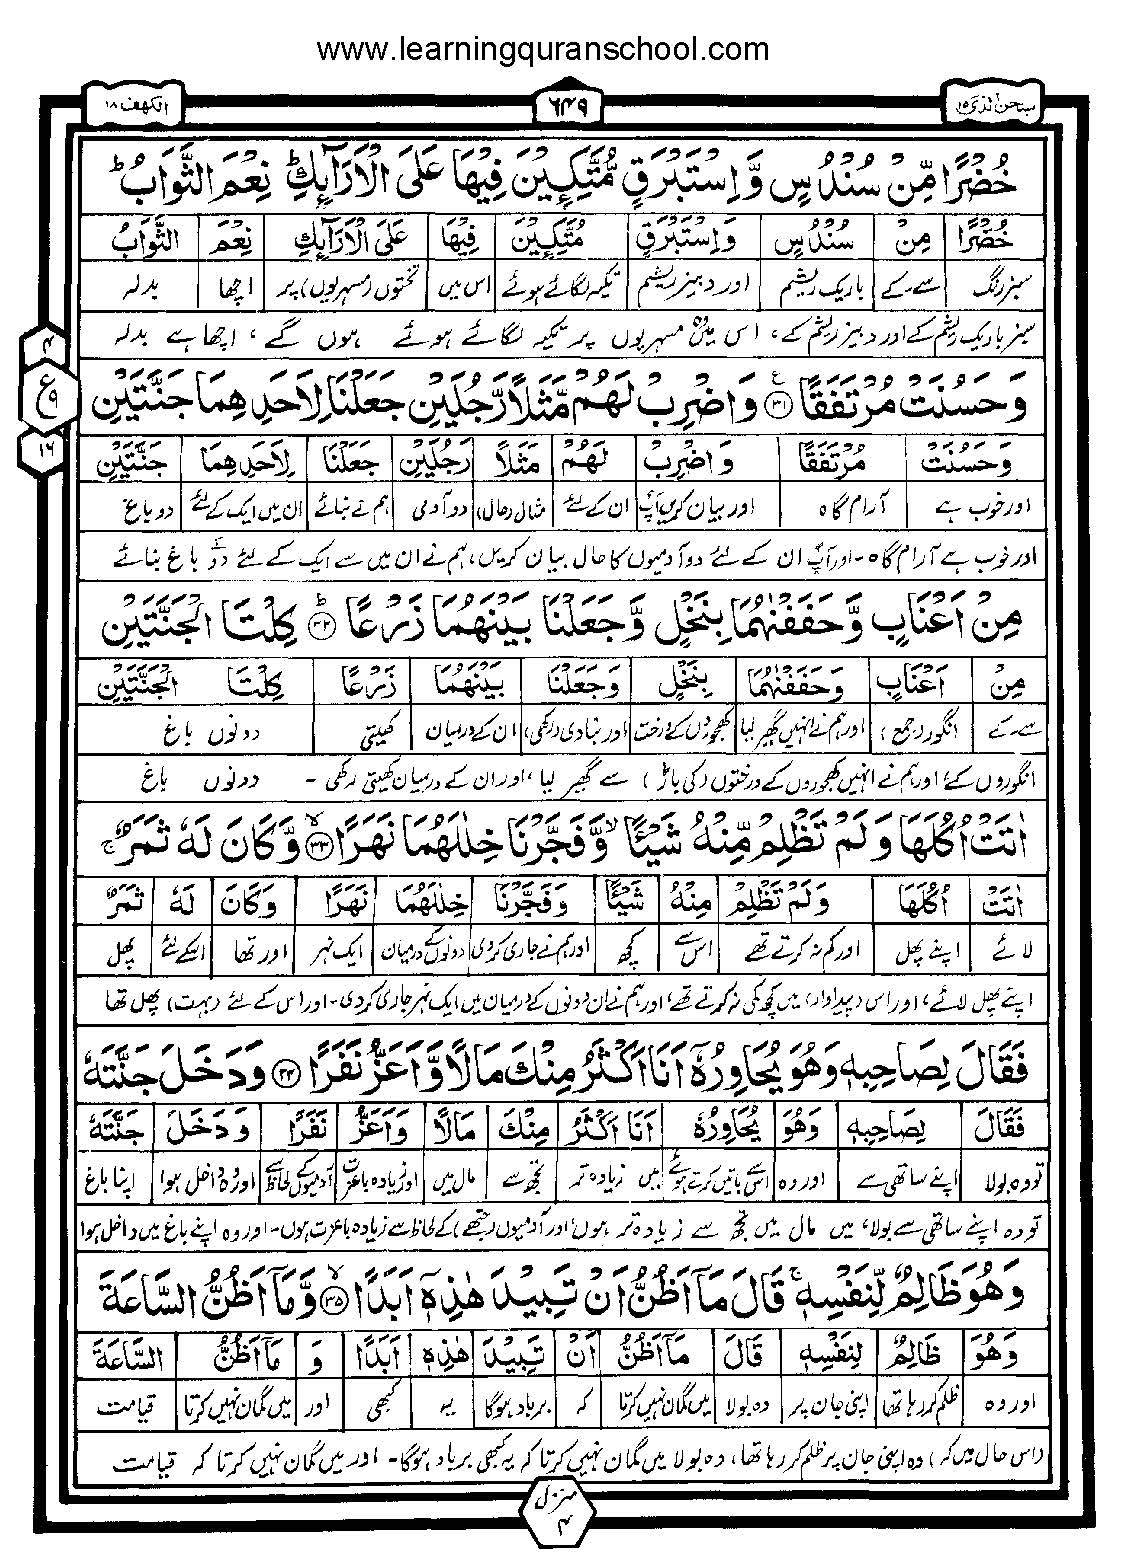 www.learningquranschool.com
سبحن الذی ۱۵
۶۴۹
الکہف ۱۸
خُضْرًا مِّنْ سُنْدُسٍ وَّاِسْتَبْرَقٍ مُّتَّكِـِٕيْنَ فِيْهَا عَلَى الْاَرَآىِٕكِ ؕ نِعْمَ الثَّوَابُ ؕ
خُضْرًا مِنْ سُنْدُسٍ وَاِسْتَبْرَقٍ مُتَّكِـِٕيْنَ فِيْهَا عَلَى الْاَرَآىِٕكِ نِعْمَ الثَّوَابُ
سبز رنگ سے۔کے باریک ریشم اور دبیز ریشم تکیہ لگائے ہوئے اس میں تختوں (مسہریوں) پر اچھا بدلہ
سبز باریک ریشم کے اور دبیز ریشم کے، اس میں وہ مسہریوں پر تکیہ لگائے ہوئے ہوں گے، اچھا ہے بدلہ
۴
ع
۹
۱۶
وَحَسُنَتْ مُرْتَفَقًا ﴿۳۱﴾ ع وَاضْرِبْ لَهُمْ مَّثَلًا رَّجُلَيْنِ جَعَلْنَا لِاَحَدِهِمَا جَنَّتَيْنِ
وَحَسُنَتْ مُرْتَفَقًا وَاضْرِبْ لَهُمْ مَثَلًا رَجُلَيْنِ جَعَلْنَا لِاَحَدِهِمَا جَنَّتَيْنِ
اور خوب ہے آرام گاہ اور بیان کریں آپؐ ان کے لئے مثال (حال) دو آدمی ہم نے بنائے ان میں ایک کے لئے دو باغ
اور خوب ہے آرام گاہ۔ اور آپؐ ان کے لئے دو آدمیوں کا حال بیان کریں، ہم نے ان میں سے ایک کے لئے دو باغ بنائے
مِنْ اَعْنَابٍ وَّحَفَفْنٰهُمَا بِنَخْلٍ وَّجَعَلْنَا بَيْنَهُمَا زَرْعًا ﴿۳۲﴾ ؕ كِلْتَا الْجَنَّتَيْنِ
مِنْ اَعْنَابٍ وَحَفَفْنٰهُمَا بِنَخْلٍ وَجَعَلْنَا بَيْنَهُمَا زَرْعًا كِلْتَا الْجَنَّتَيْنِ
سے۔کے انگور (جمع) اور ہم نے انہیں گھیر لیا کھجوروں کے درخت اور بنا دی (رکھی) ان کے درمیان کھیتی دونوں باغ
انگوروں کے، اور ہم نے انہیں کھجوروں کے درختوں (کی باڑ) سے گھیر لیا، اور ان کے درمیان کھیتی رکھی۔ دونوں باغ
اٰتَتْ اُكُلَهَا وَلَمْ تَظْلِمْ مِّنْهُ شَيْـًٔا ۙ وَّفَجَّرْنَا خِلٰلَهُمَا نَهَرًا ﴿۳۳﴾ ۙ وَّكَانَ لَهٗ ثَمَرٌ ۚ
اٰتَتْ اُكُلَهَا وَلَمْ تَظْلِمْ مِنْهُ شَيْـًٔا وَفَجَّرْنَا خِلٰلَهُمَا نَهَرًا وَكَانَ لَهٗ ثَمَرٌ
لائے اپنے پھل اور کم نہ کرتے تھے اس سے کچھ اور ہم نے جاری کردی دونوں کے درمیان ایک نہر اور تھا اسکے لئے پھل
اپنے پھل لائے، اور اس (پیداوار) میں کچھ کمی نہ کرتے تھے، اور ہم نے ان دونوں کے درمیان میں ایک نہر جاری کردی۔ اور اس کے لئے (بہت) پھل تھا
فَقَالَ لِصَاحِبِهٖ وَهُوَ يُحَاوِرُهٗۤ اَنَا اَكْثَرُ مِنْكَ مَالًا وَّاَعَزُّ نَفَرًا ﴿۳۴﴾ وَدَخَلَ جَنَّتَهٗ
فَقَالَ لِصَاحِبِهٖ وَهُوَ يُحَاوِرُهٗ اَنَا اَكْثَرُ مِنْكَ مَالًا وَاَعَزُّ نَفَرًا وَدَخَلَ جَنَّتَهٗ
تو وہ بولا اپنے ساتھی سے اور وہ اس سے باتیں کرتے ہوئے میں زیادہ تر تجھ سے مال میں اور زیادہ باعزت آدمیوں کے لحاظ سے اور وہ داخل ہوا اپنا باغ
تو وہ اپنے ساتھی سے بولا، میں مال میں تجھ سے زیادہ تر ہوں، اور آدمیوں (جتھے) کے لحاظ سے زیادہ باعزت ہوں۔ اور وہ اپنے باغ میں داخل ہوا
وَهُوَ ظَالِمٌ لِّنَفْسِهٖ ۚ قَالَ مَاۤ اَظُنُّ اَنْ تَبِيْدَ هٰذِهٖۤ اَبَدًا ﴿۳۵﴾ ۙ وَّمَاۤ اَظُنُّ السَّاعَةَ
وَهُوَ ظَالِمٌ لِنَفْسِهٖ قَالَ مَاۤ اَظُنُّ اَنْ تَبِيْدَ هٰذِهٖ اَبَدًا وَ مَاۤ اَظُنُّ السَّاعَةَ
اور وہ ظلم کر رہا تھا اپنی جان پر وہ بولا میں گمان نہیں کرتا کہ برباد ہوگا یہ کبھی اور میں گمان نہیں کرتا قیامت
(اس حال میں کہ) وہ اپنی جان پر ظلم کر رہا تھا، وہ بولا میں گمان نہیں کرتا کہ یہ کبھی برباد ہوگا۔ اور میں گمان نہیں کرتا کہ قیامت
منزل
۴